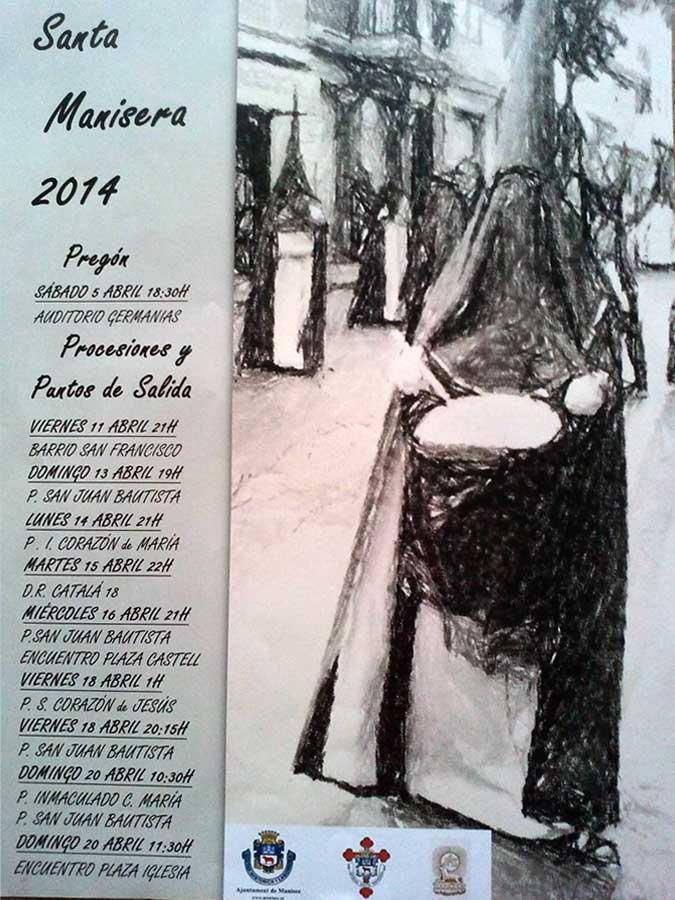 Santa
Manisera
2014
Pregón
SÁBADO 5 ABRIL 18:30H
AUDITORIO GERMANIAS
Procesiones y
Puntos de Salida
VIERNES 11 ABRIL 21H
BARRIO SAN FRANCISCO
DOMINGO 13 ABRIL 19H
P. SAN JUAN BAUTISTA
LUNES 14 ABRIL 21H
P. I. CORAZÓN de MARÍA
MARTES 15 ABRIL 22H
D.R. CATALÁ 18
MIÉRCOLES 16 ABRIL 21H
P.SAN JUAN BAUTISTA
ENCUENTRO PLAZA CASTELL
VIERNES 18 ABRIL 1H
P. S. CORAZÓN de JESÚS
VIERNES 18 ABRIL 20:15H
P. SAN JUAN BAUTISTA
DOMINGO 20 ABRIL 10:30H
P. INMACULADO C. MARÍA
P. SAN JUAN BAUTISTA
DOMINGO 20 ABRIL 11:30H
ENCUENTRO PLAZA IGLESIA
Ajuntament de Manises
www.manises.es